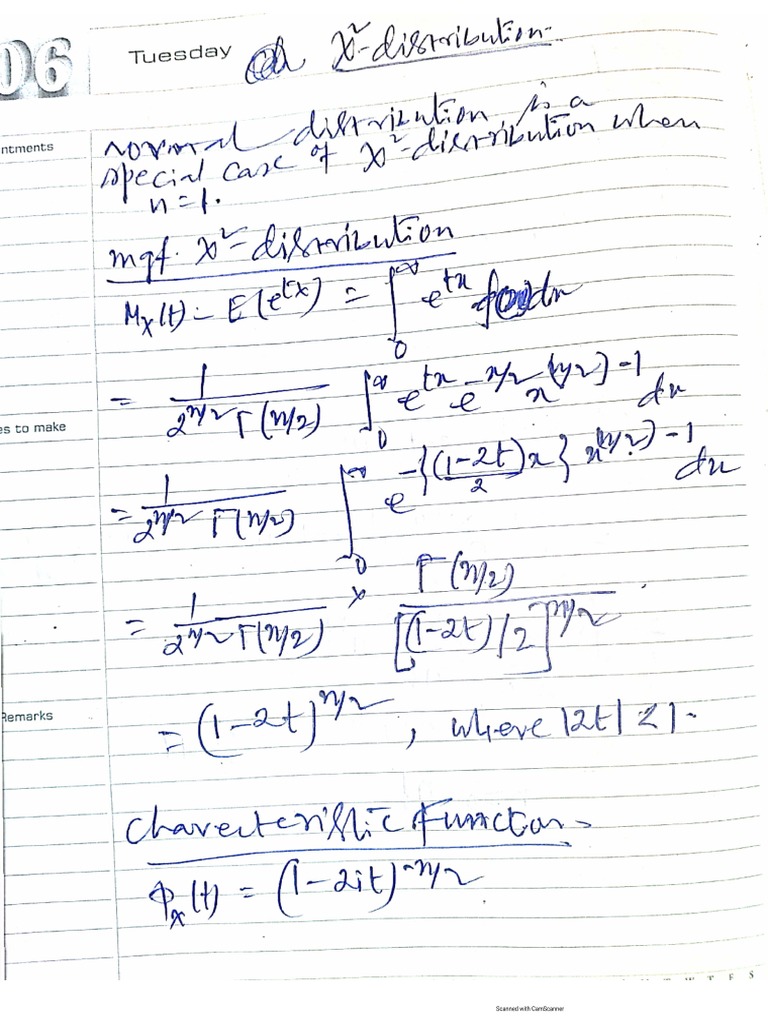 06
Tuesday χ²-distribution
ntments
normal distribution is a
special case of χ²-distribution when
n=1.
mgf. χ²-distribution
M_X(t) = E(e^{tx}) = ∫_0^∞ e^{tx} f(x)dx
= 1/(2^{n/2} Γ(n/2)) ∫_0^∞ e^{tx} e^{-x/2} x^{(n/2)-1} dx
es to make
= 1/(2^{n/2} Γ(n/2)) ∫_0^∞ e^{-{(1-2t)/2 x}} x^{(n/2)-1} dx
= 1/(2^{n/2} Γ(n/2)) × Γ(n/2)/[(1-2t)/2]^{n/2}
Remarks
= (1-2t)^{n/2}, where |2t| < 1.
Charecteristic Function
φ_x(t) = (1-2it)^{-n/2}
Scanned with CamScanner